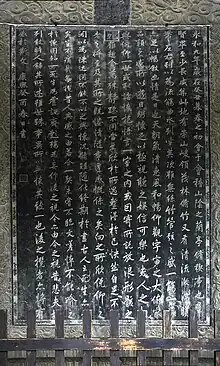 永和九年歲在癸丑暮春之初會于會稽山陰之蘭亭修禊事
也羣賢畢至少長咸集此地有崇山峻領茂林脩竹又有清流激湍
映帶左右引以為流觴曲水列坐其次雖無絲竹管弦之盛一觴一詠
亦足以暢敘幽情是日也天朗氣清惠風和暢仰觀宇宙之大俯察
品類之盛所以遊目騁懷足以極視聽之娛信可樂也夫人之相
與俯仰一世或取諸懷抱悟言一室之內或因寄所託放浪形骸之
外雖趣舍萬殊靜躁不同當其欣於所遇暫得於己快然自足不
知老之將至及其所之既惓情隨事遷感慨係之矣向之所欣俛仰之
間以為陳迹猶不能不以之興懷況脩短隨化終期於盡古人云死生亦
大矣豈不痛哉每攬昔人興感之由若合一契未嘗不臨文嗟悼不能喻
之於懷固知一死生為虛誕齊彭殤為妄作後之視今亦由今之視昔悲夫故
列敘時人錄其所述雖世殊事異所以興懷其致一也後之攬者亦將有
感於斯文 康熙